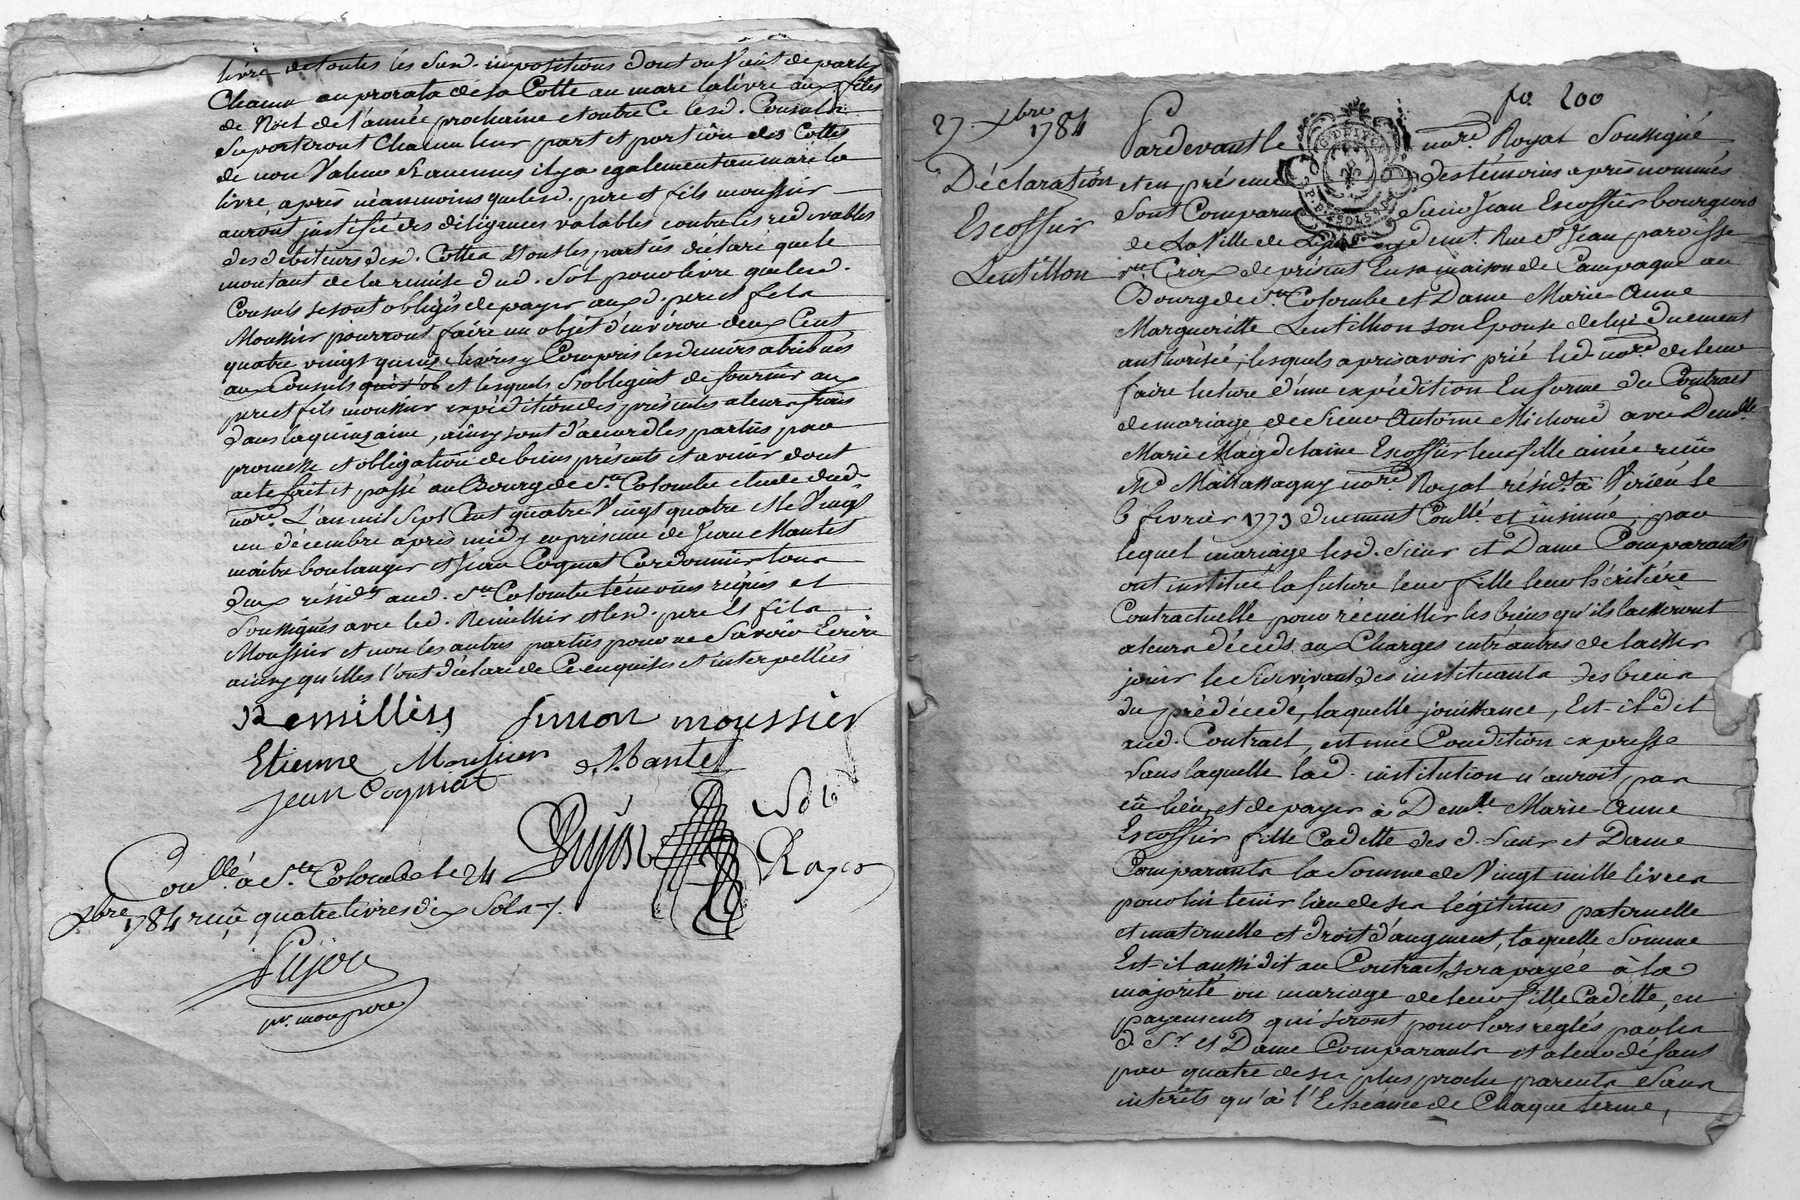 livre de toutes les Susd. impositions dont on Vait de parler
Chacun au prorata de sa Cotte au marc la livre aux fêtes
de Noël de l'année prochaine et outre Ce lesd. Consuls
Suporteront Chacun leur part et portion des Cottes
de non Valeur Si aucunes il y a egalement au marc la
livre après néanmoins que lesd. pere et fils moussier
auront justifié des diligences valables contre les redevables
des débiteurs desd. Cottes Dont les partiës déclaré que le
montant de la remise dud. Sol pour livre que lesd.
Consuls se sont obligés de payer auxd. pere et fils
Moussier pourront faire un objet d'environ deux Cent
quatre vingt quinze livres y Compris les deniers atribués
aux Consuls et lesquels S'obligent de fournir aux
pere et fils moussier expédition des présentes a leurs frais
dans la quinzaine, ainsy sont d'acord les partiës par
promesse et obligation de biens présents et avenir dont
acte fait et passé au Bourg de Ste. Colombe etude dud.
nore. L'an mil Sept Cent quatre Vingt quatre et le Vingt
un décembre après midy en présence de Jean Mantet
maitre boulanger et Jean Cognat Cordonnier tous
deux résidts. aud. Ste Colombe témoins requis et
Soussignés avec led. Remillier et lesd. pere et fils
Moussier et non les autres partiës pour ne Savoir Ecrire
ainsy qu'elles l'ont déclaré de Ce enquises et interpellées
Remilliers Simon moussier
Etienne Moussier Mantet
Jean Cogniat
Pujon Not.
Royal
Conllé à Ste. Colombe le 24
xbre 1784 reçu quatre livres dix Sols
Pujon
pr. mon pere
fo. 200
27. xbre 1784
Déclaration
Escoffier
Lentillon
Pardevant le nore. Royal Soussigné
et en présence des témoins après nommés
Sont Comparus Sieur Jean Escoffier bourgeois
de La Ville de Lyon y demt. Rue St Jean paroisse
Ste Croix de présent En sa maison de Campagne au
Bourg de Ste Colombe et Dame Marie Anne
Margueritte Lentillon son Epouse de luy duement
authorisée, lesquels après avoir prié led. nore. de leur
faire lecture d'une expédition En forme du Contract
de mariage de Sieur Antoine Michoud avec Demlle
Marie Magdelaine Escoffier leur fille ainée reçu
Me nore. Royal résidt. à Virieu le
6 fevrier 1773 duement Conllé. et insinué, par
lequel mariage lesd. Sieur et Dame Comparants
ont institué la future leur fille leur héritière
Contractuelle pour recueillir les biens qu'ils laisseront
a leurs décès aux Charges entr'autres de laisser
jouir le Survivant des instituants des biens
du prédécédé, laquelle jouissance, Est-il dit
aud. Contract, est une Condition expresse
Sans laquelle lad. institution n'auroit pas
eû lieu, et de payer à Demlle Marie Anne
Escoffier fille Cadette des d. Sieur et Dame
Comparants la Somme de Vingt mille livres
pour lui tenir lieu de ses légitimes paternelle
et maternelle et droit d'augment, laquelle Somme
Est-il aussi dit au Contract sera payée à la
majorité ou mariage de leur fille Cadette, en
payements qui seront pour lors reglés par les
d. Sr. et Dame Comparants et a leur défaut
par quatre de ses plus proches parents Sans
interêts qu'à l'Echeance de Chaque terme,